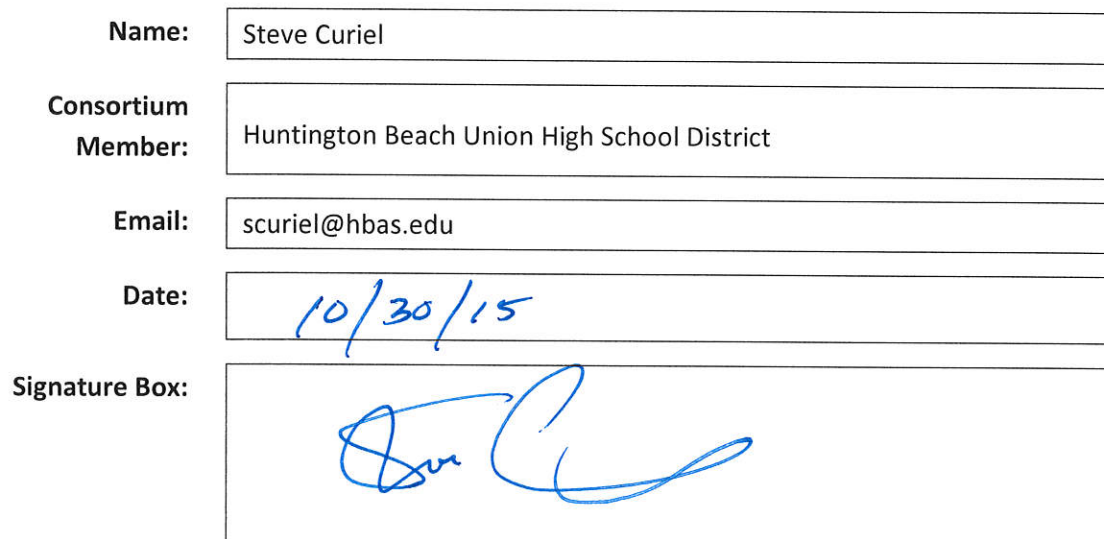 Name: Steve Curiel
Consortium
Member: Huntington Beach Union High School District
Email: scuriel@hbas.edu
Date: 10/30/15
Signature Box: